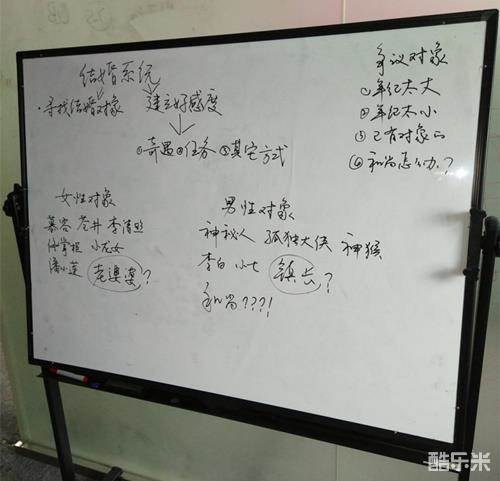 结婚系统
·寻找结婚对象 建立好感度
①奇遇②任务③其它方式
争议对象
①年纪太大
②年纪太小
③已有对象的
④和尚怎么办?
女性对象
慕容 苍井 李清照
小龙女
潘小莲 老婆婆?
男性对象
神秘人 孤独大侠 神猴
李白 小七 镇长?
和尚???!
酷乐米